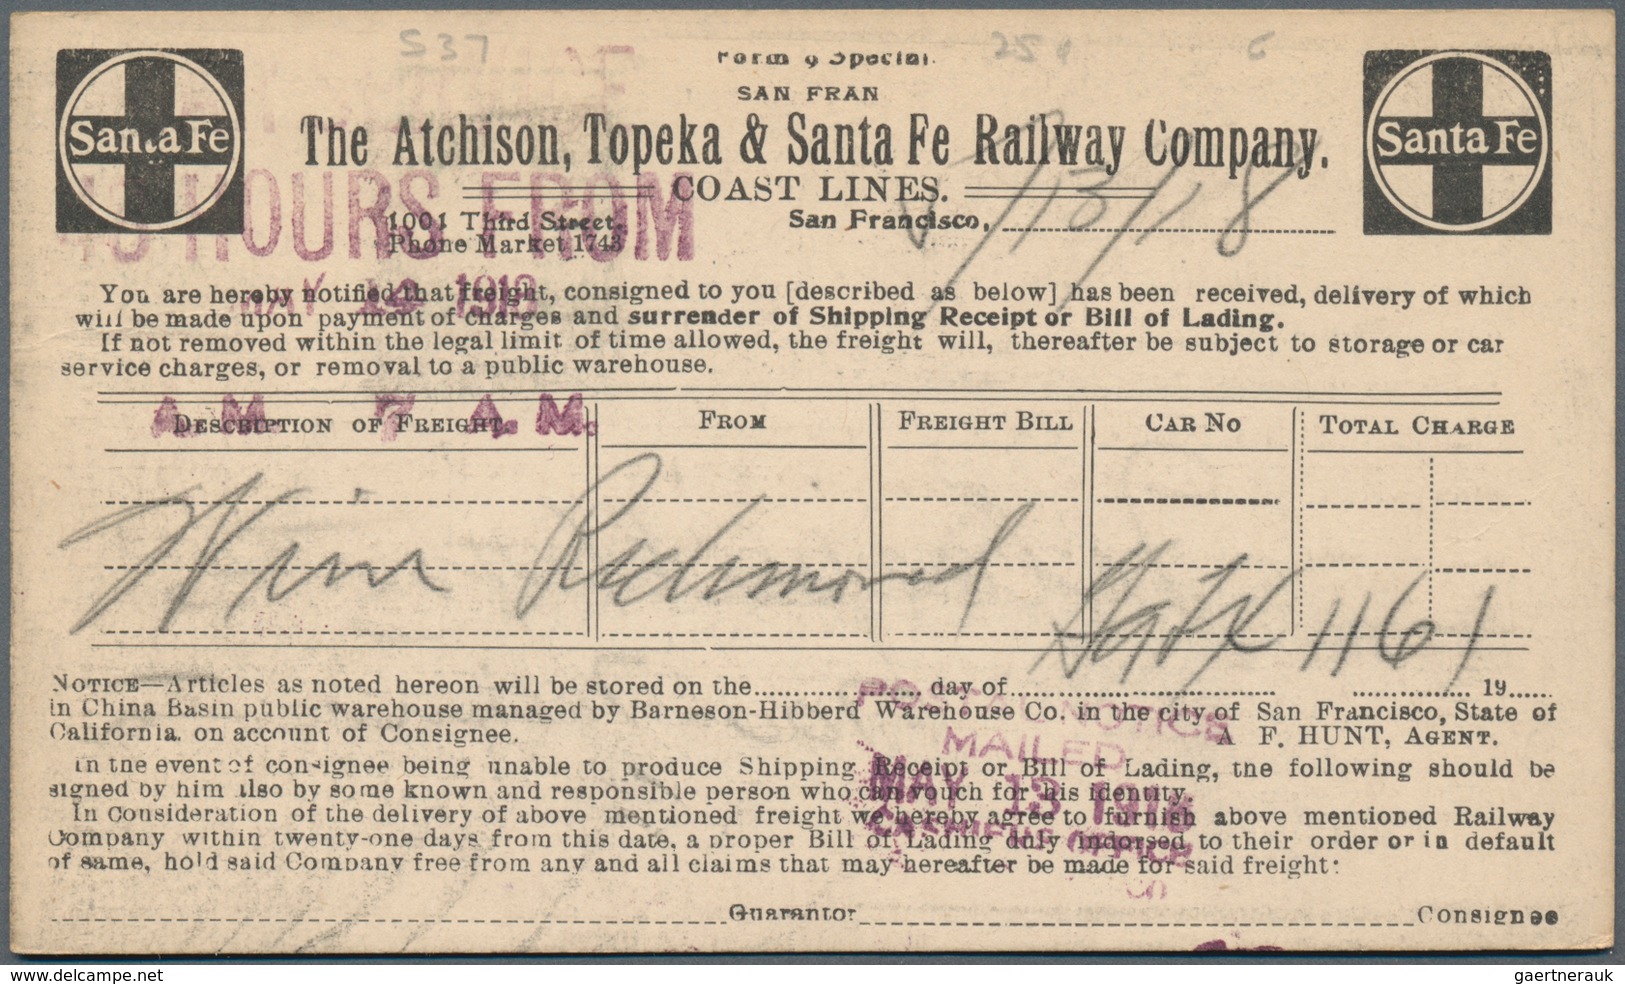 537 25¢ 6
Form 9 Special.
SAN FRAN
Santa Fe
The Atchison, Topeka & Santa Fe Railway Company.
Santa Fe
COAST LINES.
48 HOURS FROM
1001 Third Street,
Phone Market 1743
San Francisco, 5/13/18
MAY 14 1918
You are hereby notified that freight, consigned to you [described as below] has been received, delivery of which
will be made upon payment of charges and surrender of Shipping Receipt or Bill of Lading.
If not removed within the legal limit of time allowed, the freight will, thereafter be subject to storage or car
service charges, or removal to a public warehouse.
A.M. 7 A.M.
DESCRIPTION OF FREIGHT FROM FREIGHT BILL CAR NO TOTAL CHARGE
Wine Richmond 1161
NOTICE—Articles as noted hereon will be stored on the day of 19
in China Basin public warehouse managed by Barneson-Hibberd Warehouse Co. in the city of San Francisco, State of
California, on account of Consignee. A F. HUNT, AGENT.
POSTAL NOTICE
MAILED
MAY 13 1918
CASHIERS OFFICE
In the event of consignee being unable to produce Shipping Receipt or Bill of Lading, the following should be
signed by him also by some known and responsible person who can vouch for his identity.
In Consideration of the delivery of above mentioned freight we hereby agree to furnish above mentioned Railway
Company within twenty-one days from this date, a proper Bill of Lading duly indorsed to their order or in default
of same, hold said Company free from any and all claims that may hereafter be made for said freight:
Guarantor Consignee
www.delcampe.net
gaertnerauk